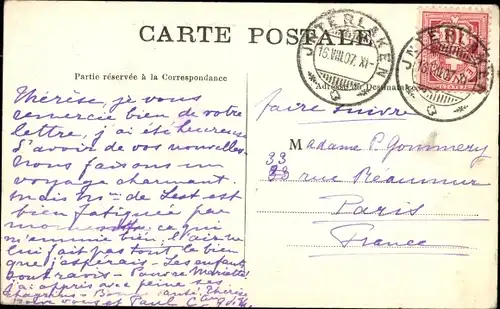 CARTE POSTALE
Partie réservée à la Correspondance
Adresse du Destinataire
INTERLAKEN
16.VIII.07.XI
INTERLAKEN
16.VIII.07.XI
Thérèse, je vous
remercie bien de votre
lettre, j'ai été heureuse
d'avoir de vos nouvelles.
Nous faisons un
voyage charmant
mais Me de Lest est
bien fatiguée par
moments ce qui
m'ennuie bien; l'air ne
lui fait pas tout le bien
que j'espérais - Les enfants
sont ravis - Pauvre Mariette!
j'ai appris avec peine ses
chagrins - Bonne santé Thérèse
votre vous et Paul
faire suivre
M adame P. Gommery
33
33 rue Réaumur
Paris
France